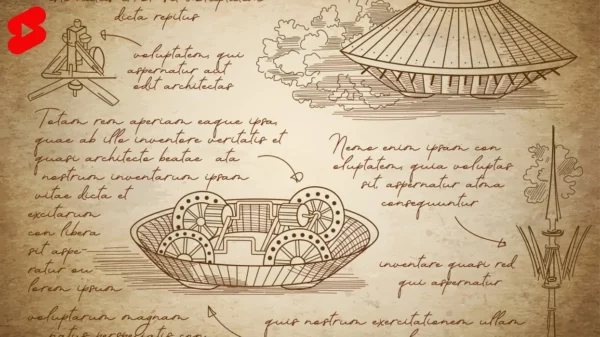 dicta repitus
voluptatem, qui
aspernatur aut
odit architectas
Totam rem aperiam eaque ipsa,
quae ab illo inventore veritatis et
quasi architecto beatae ata
nostrum inventarum ipsam
vitae dicta et
excitarum
con libera
sit aspe-
natur ou
lorem ipsum
voluptarum magnam
Nemo enim ipsam con
oluptatem, quia voluptas
sit aspernatur atma
consequuntur
inventare quasi red
qui aspernatur
quis nostrum exercitationem ullam